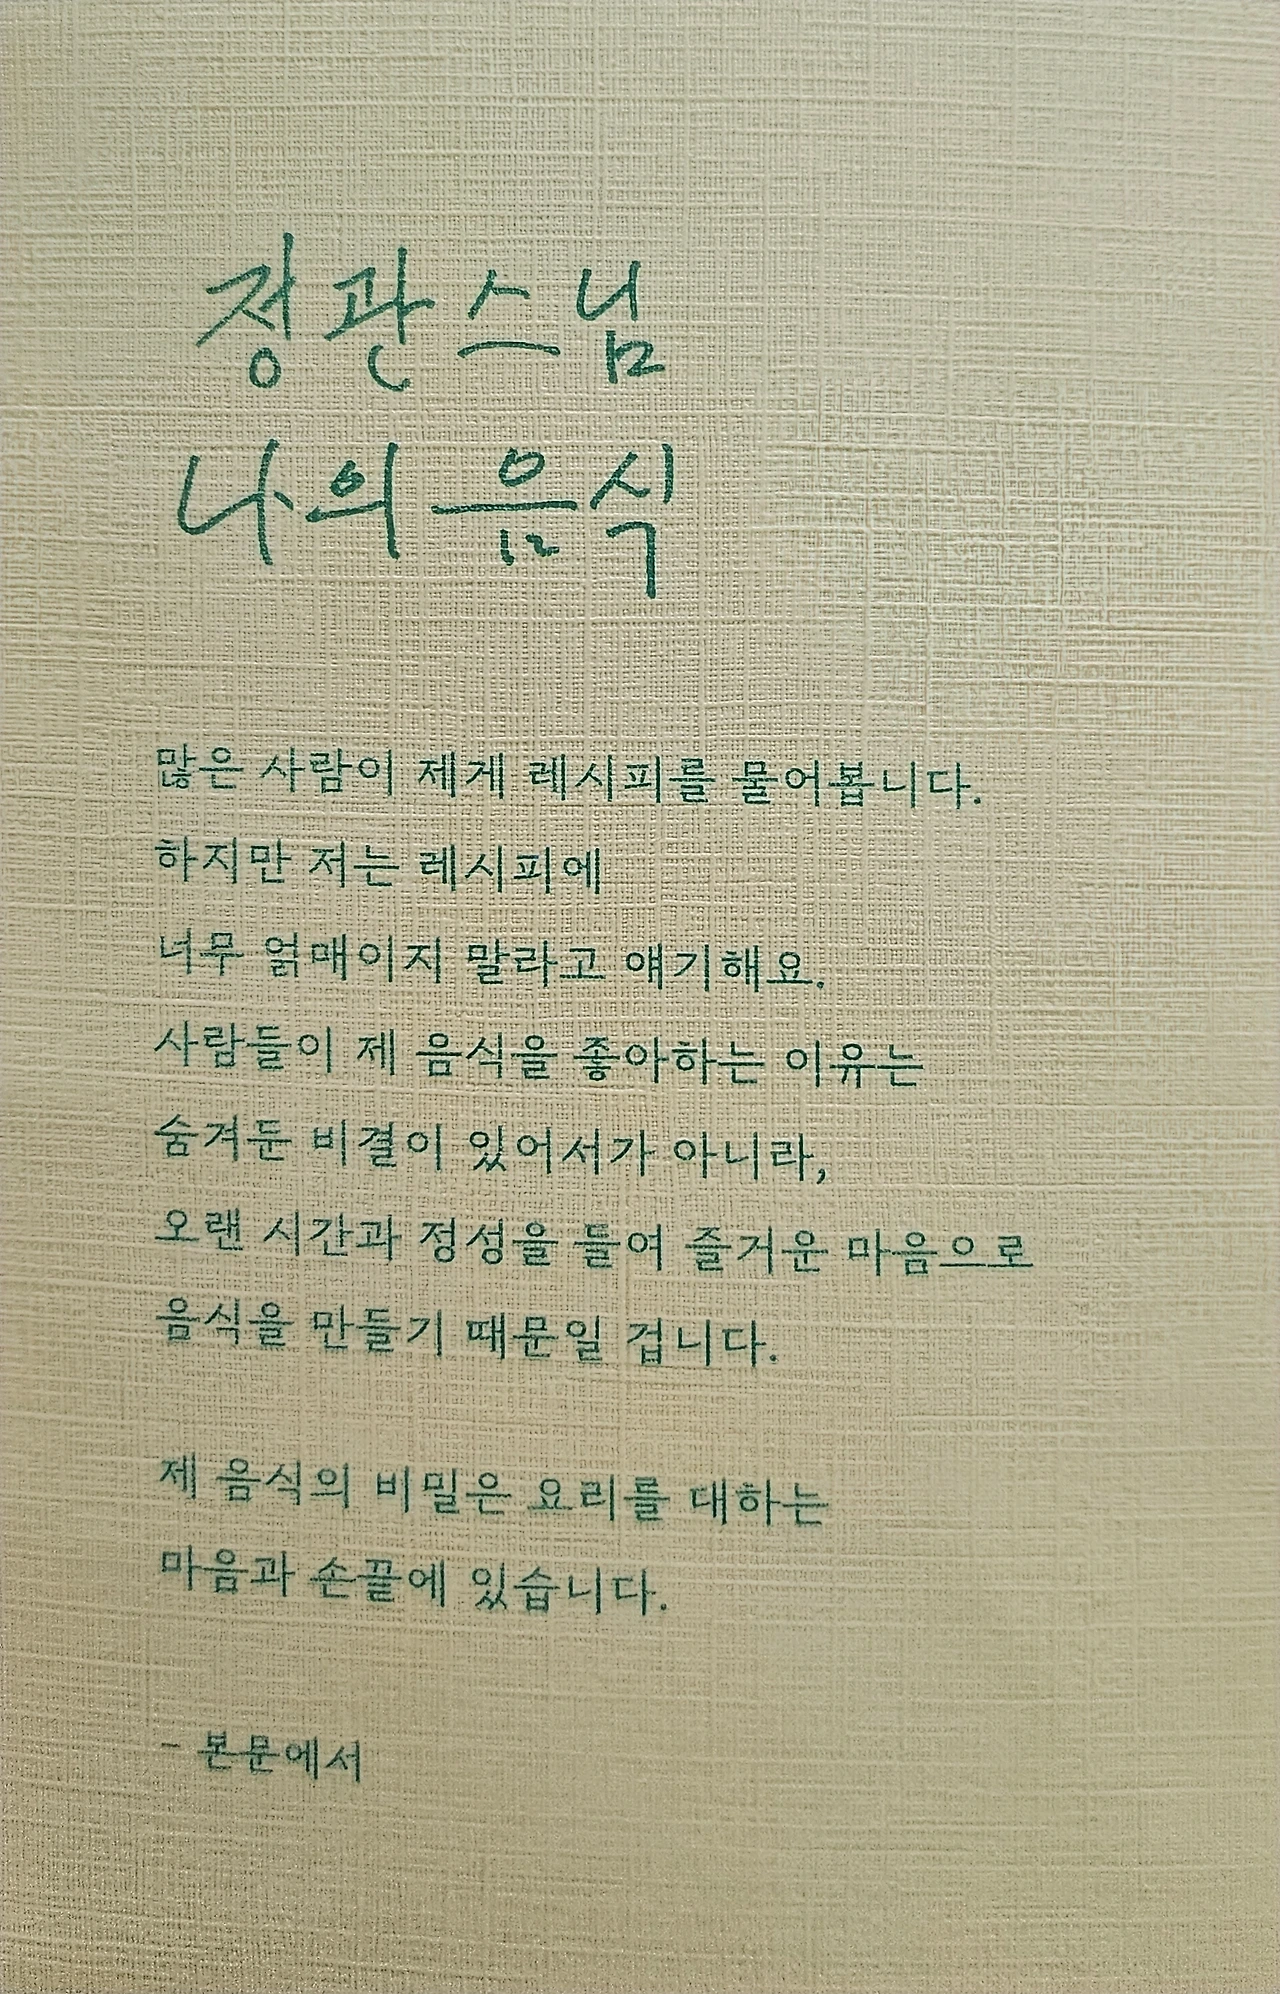 정관스님
나의 음식
많은 사람이 제게 레시피를 물어봅니다.
하지만 저는 레시피에
너무 얽매이지 말라고 얘기해요.
사람들이 제 음식을 좋아하는 이유는
숨겨둔 비결이 있어서가 아니라,
오랜 시간과 정성을 들여 즐거운 마음으로
음식을 만들기 때문일 겁니다.
제 음식의 비밀은 요리를 대하는
마음과 손끝에 있습니다.
- 본문에서